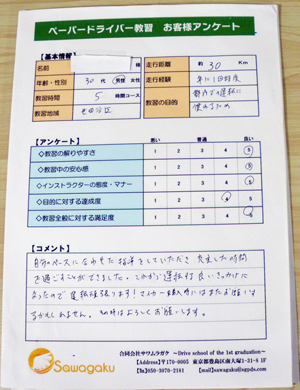 ペーパードライバー教習 お客様アンケート
【基本情報】
名前 様 走行距離 約 30 Km
年齢・性別 30 代 男性 女性 走行経験 年に1回程度
教習時間 5 時間コース 教習の目的 都内での運転に慣れるため
教習地域 世田谷区
【アンケート】 悪い 普通 良い
◇教習の解りやすさ 1 2 3 4 5
◇教習中の安心感 1 2 3 4 5
◇インストラクターの態度・マナー 1 2 3 4 5
◇目的に対する達成度 1 2 3 4 5
◇教習全般に対する満足度 1 2 3 4 5
【コメント】
自分のペースに合わせた指導をしていただき 充実した時間
を過ごすことができました。これから運転する良いきっかけに
なったので運転頑張ります! マイカー購入時にはまたお願いす
るかもしれません。その時はよろしくお願いします。
Sawagaku
合同会社サワムラガク ～Drive school of the 1st graduation～
【Address】〒170-0005 東京都豊島区南大塚1-31-4 1F
【Tel】050-3076-2181 【Mail】sawagaku@sgpds.com